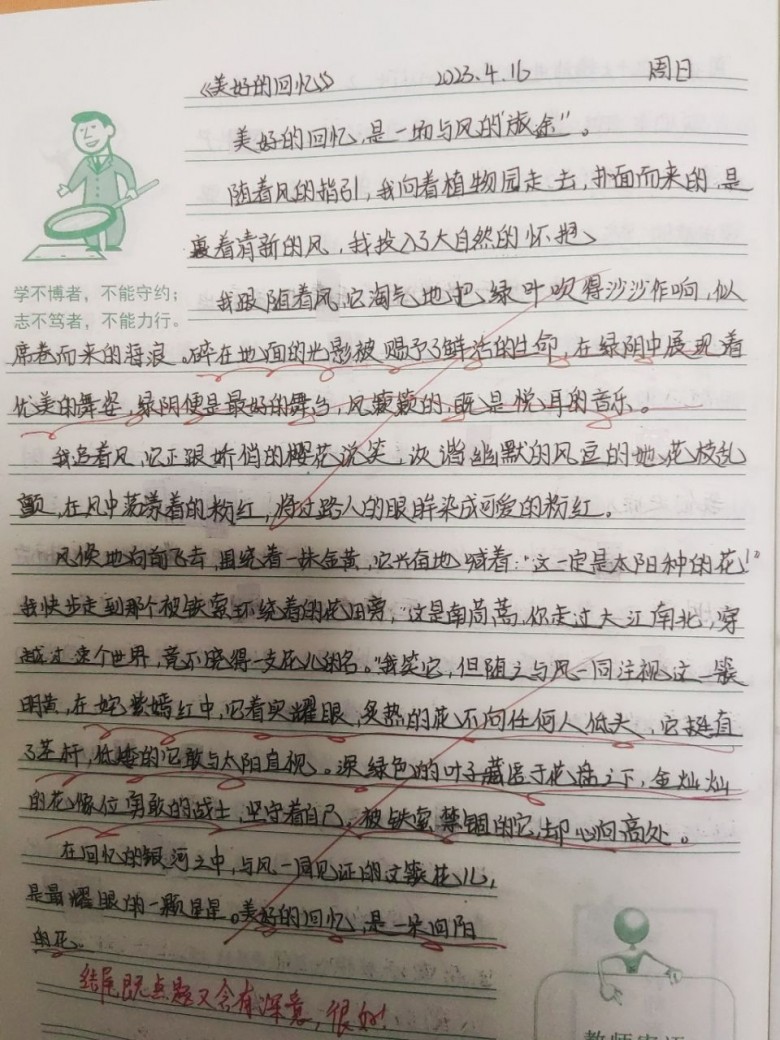 《美好的回忆》 2023.4.16 周日
美好的回忆,是一场与风的"旅途"。
随着风的指引,我向着植物园走去,扑面而来的,是
裹着清新的风,我投入了大自然的怀抱
学不博者,不能守约;
志不笃者,不能力行。
我跟随着风,它淘气地把绿叶吹得沙沙作响,似
席卷而来的海浪。碎在地面的光影被赐予了鲜活的生命,在绿阴中展现着
优美的舞姿,绿阴便是最好的舞台,风簌簌的,既是悦耳的音乐。
我追着风,它正跟娇俏的樱花说笑,诙谐幽默的风逗的她花枝乱
颤,在风中荡漾着的粉红,将过路人的眼眸染成可爱的粉红。
风倏地向前飞去,围绕着一抹金黄,它兴奋地喊着:"这一定是太阳种的花!"
我快步走到那个被铁索环绕着的花田旁,"这是南茼蒿,你走过大江南北,穿
越过 这个世界,竟不晓得一支花儿的名。"我笑它,但随之与风一同注视这一簇
明黄,在姹紫嫣红中,它着实耀眼,炙热的花不向任何人低头,它挺直
了茎杆,低矮的它敢与太阳直视。深绿色的叶子藏匿于花盘之下,金灿灿
的花像位勇敢的战士,坚守着自己,被铁索禁锢的它,却心向高处。
在回忆的银河之中,与风一同见证的这簇花儿,
是最耀眼的一颗星星。美好的回忆,是一朵向阳
的花。
结尾既点题又含有深意,很好!